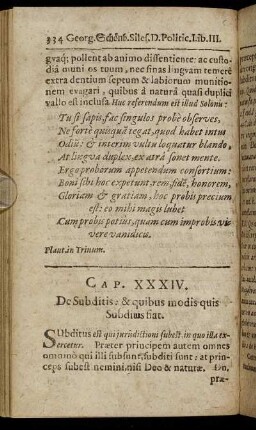 334 Georg. Schönb. Siles. D. Politic. Lib. III.
gvaq; pollent ab animo dissentiente: ac custo-
diâ muni os tuum, nec sinas lingvam temerè
extra dentium septum & labiorum munitio-
nem evagari, quibus à naturâ quasi duplici
vallo est inclusa. Huc referendum est illud Solonis:
Tu si sapis, fac singulos probè observes,
Ne fortè quisquã tegat, quod habet intus
Odiũ: & interim vultu loquatur blando,
At lingva duplex, ex atrâ sonet mente.
Ergo proborum appetendum consortium:
Boni sibi hoc expetunt, rem, fidẽ, honorem,
Gloriam & gratiam, hoc probis precium
est: eo mihi magis lubet
Cum probis potius, quam cum improbis vi-
vere vanidicis.
Plaut. in Trinum.
CAP. XXXIV.
De Subditis: & quibus modis quis
Subditus fiat.
SUbditus est qui jurisdictioni subest, in quo illa ex-
ercetur. Præter principem autem omnes
omninò qui illi subsunt, subditi sunt: at prin-
ceps subest nemini, nisi Deo & naturæ.
præ-